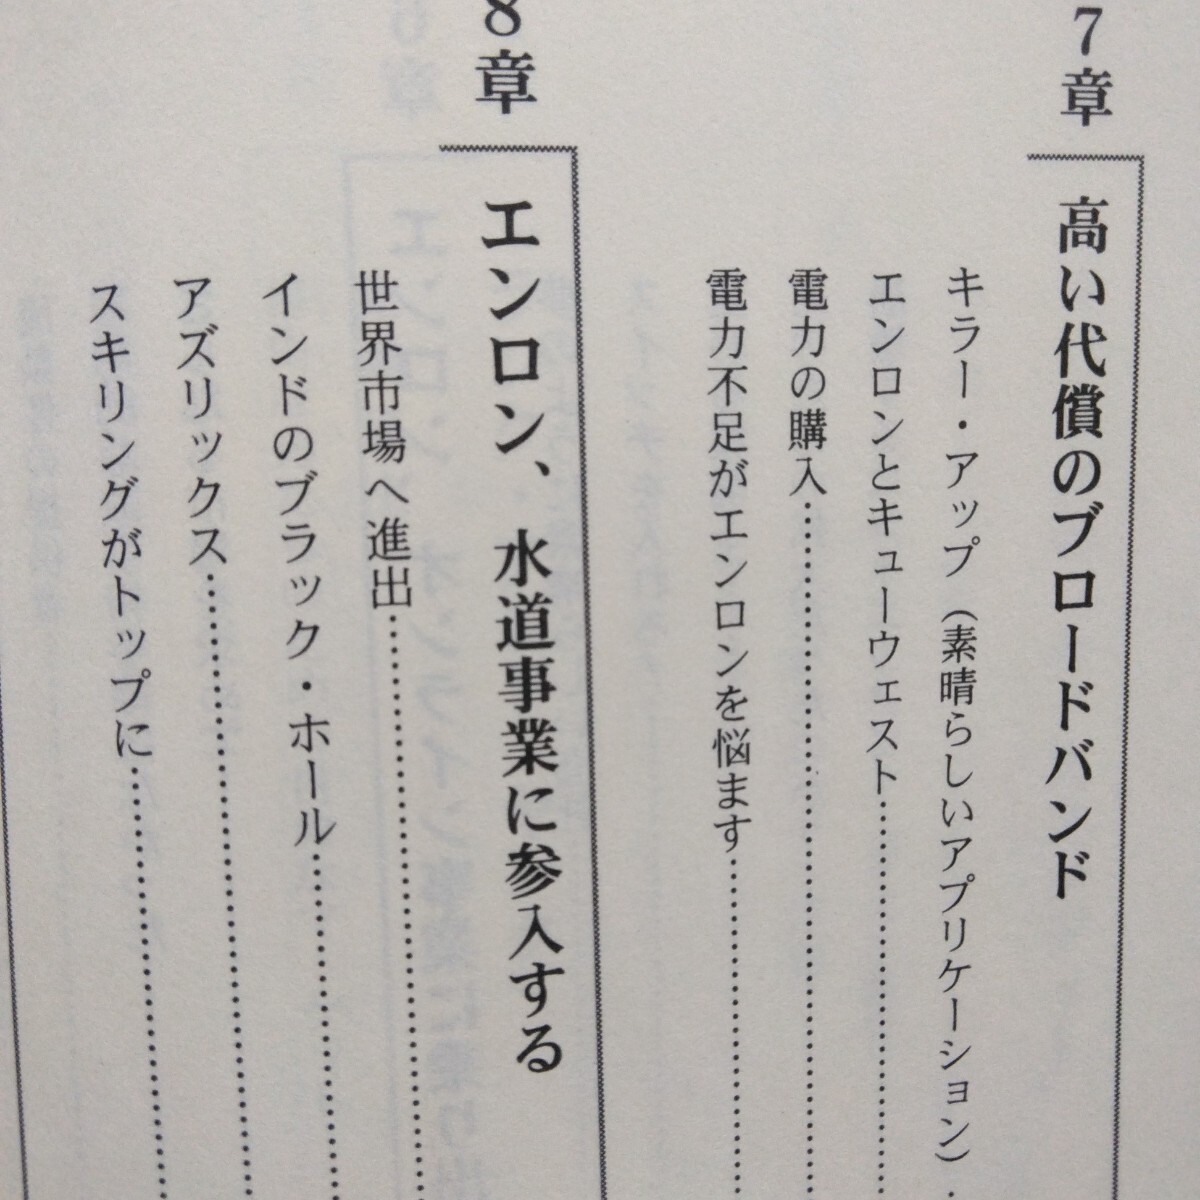 7章
高い代償のブロードバンド
キラー・アップ（素晴らしいアプリケーション）
エンロンとキューウェスト
電力の購入
電力不足がエンロンを悩ます
8章
エンロン、水道事業に参入する
世界市場へ進出
インドのブラック・ホール
アズリックス
スキリングがトップに